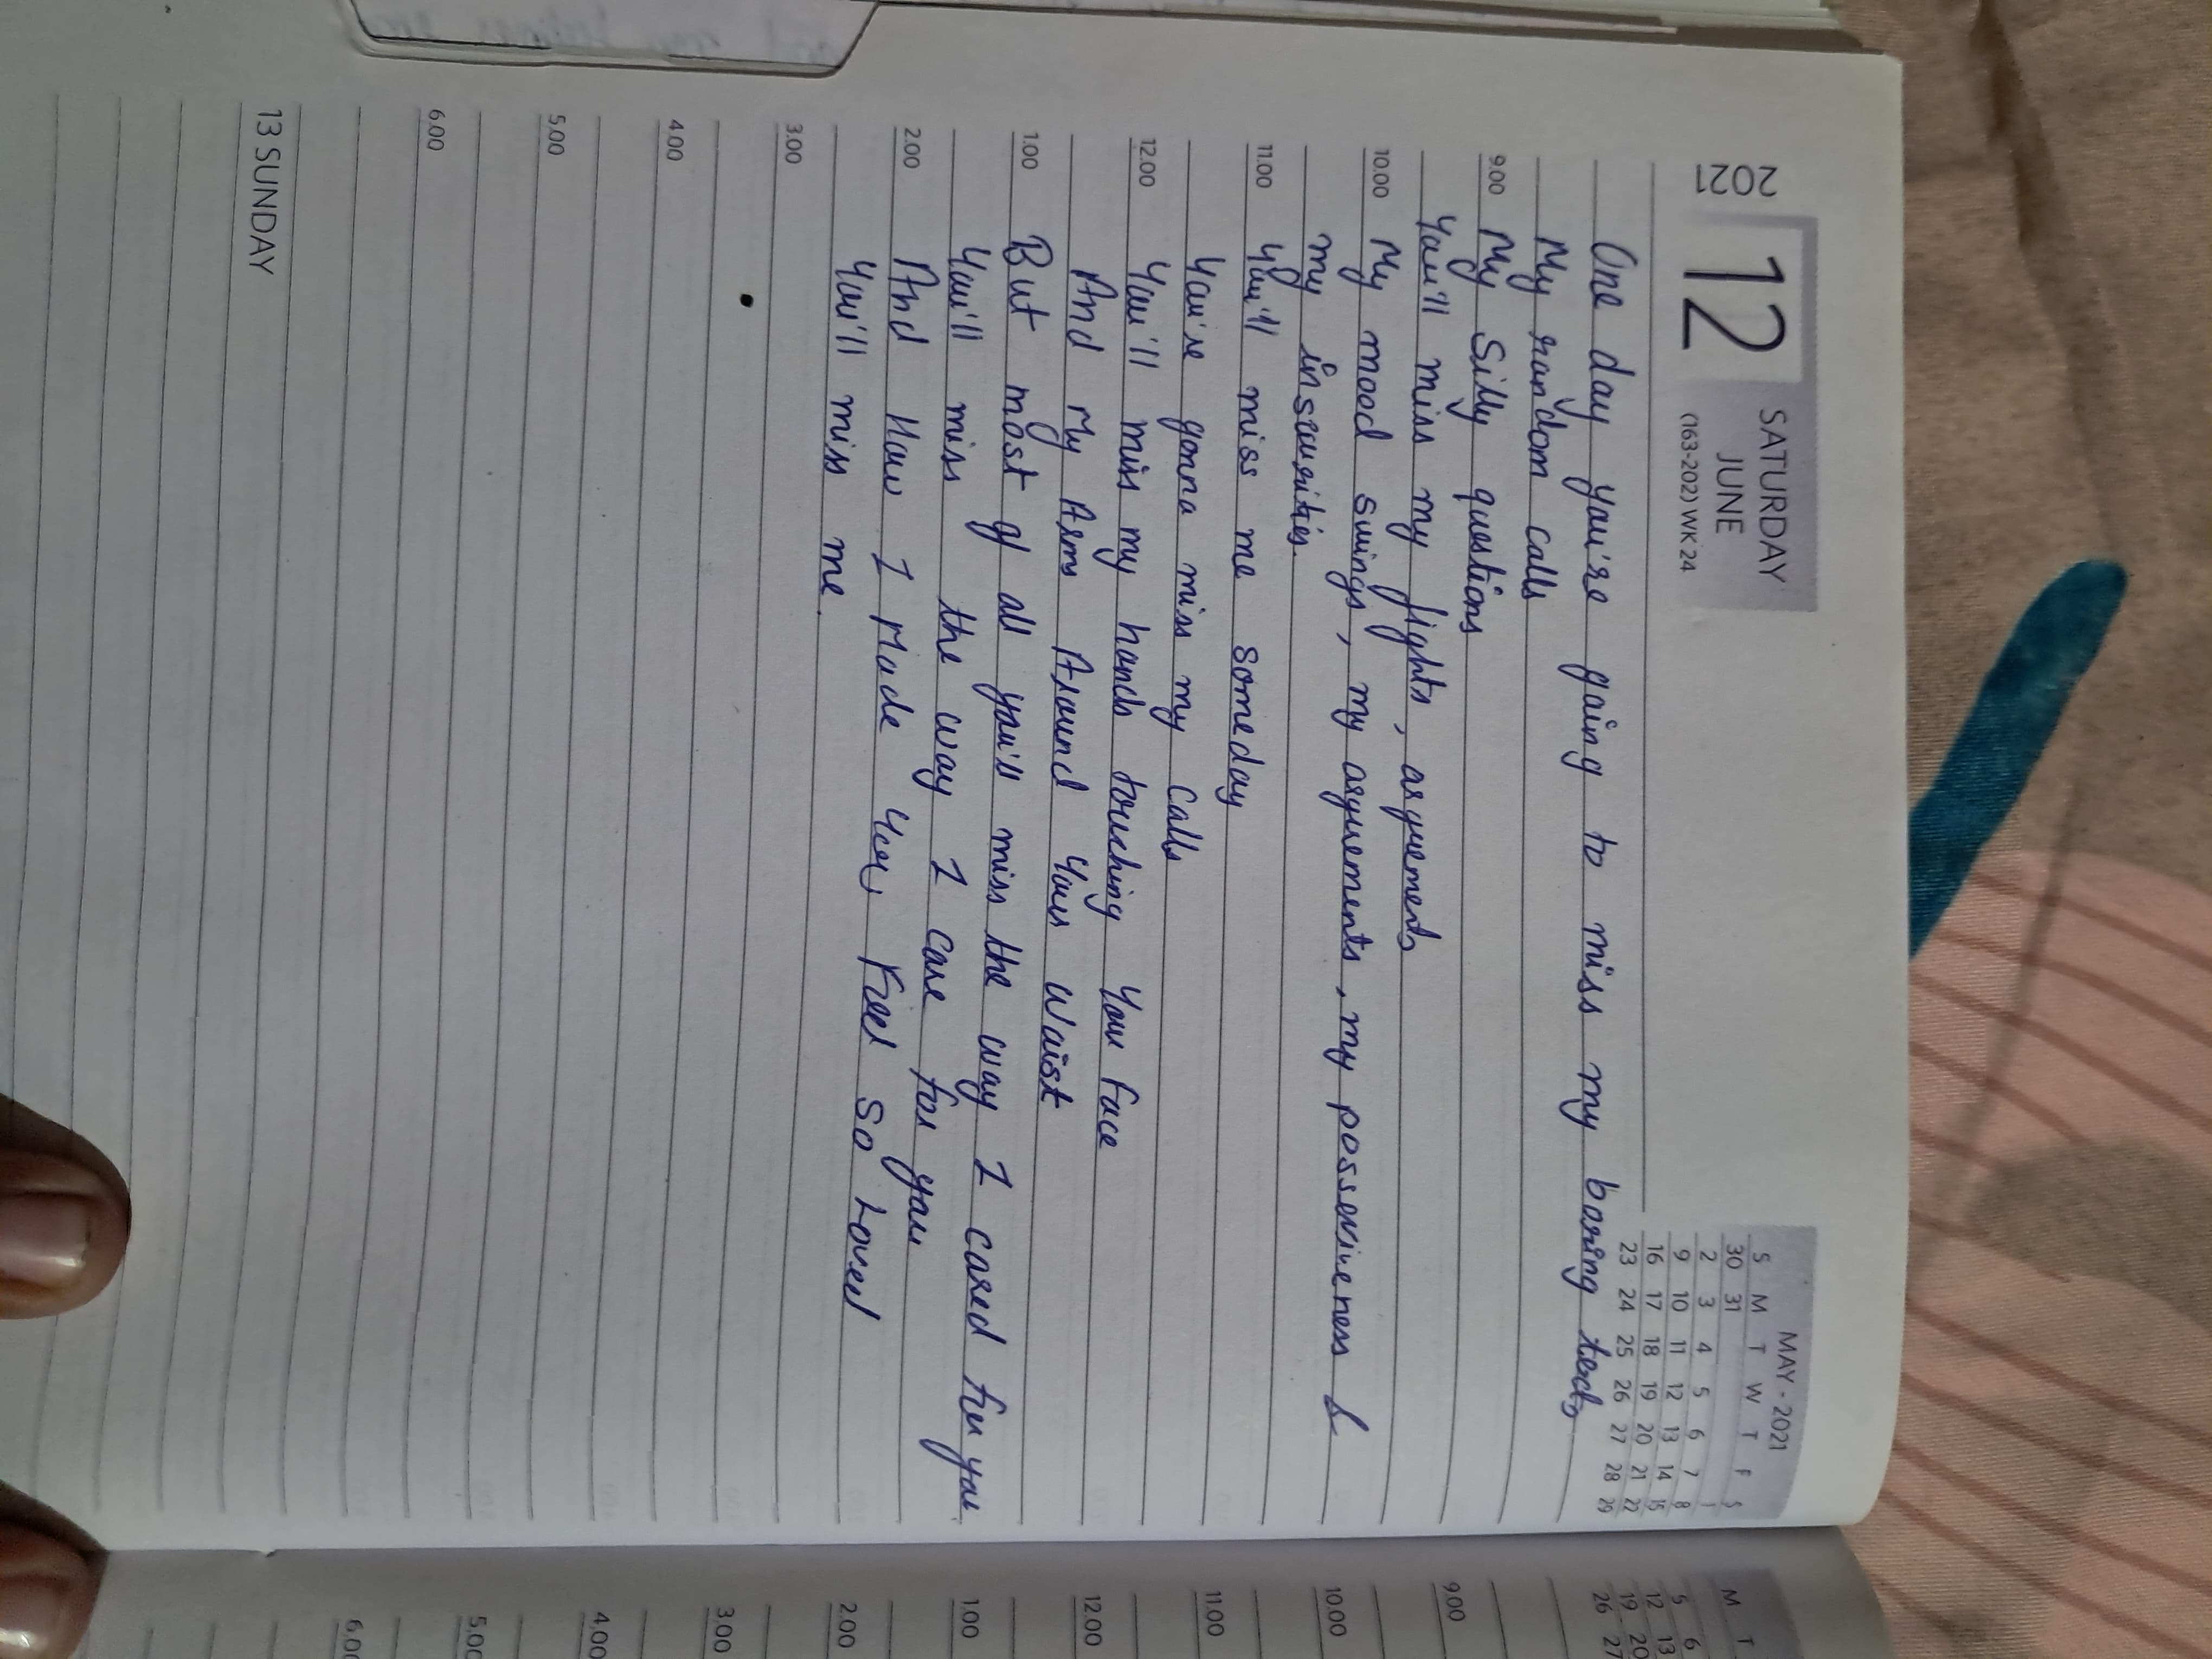 2021
12
SATURDAY
JUNE
(163-202) WK 24
MAY - 2021
S M T W T F S
30 31 1
2 3 4 5 6 7 8
9 10 11 12 13 14 15
16 17 18 19 20 21 22
23 24 25 26 27 28 29
One day you're going to miss my boring texts
My random calls
9.00 My Silly questions
You'll miss my fights, arguements
10.00 My mood swings, my arguements, my possessiveness &
my insecurities.
11.00 You'll miss me someday
You're gonna miss my calls
12.00 You'll miss my hands touching Your Face
And My Arms Around Your Waist
1.00 But most of all you'll miss the way I cared for you.
You'll miss the way I care for you
2.00 And How I Made You Feel So Loved
You'll miss me.
3.00
4.00
5.00
6.00
13 SUNDAY
M T
5 6
12 13
19 20
26 27
9.00
10.00
11.00
12.00
1.00
2.00
3.00
4.00
5.00
6.00